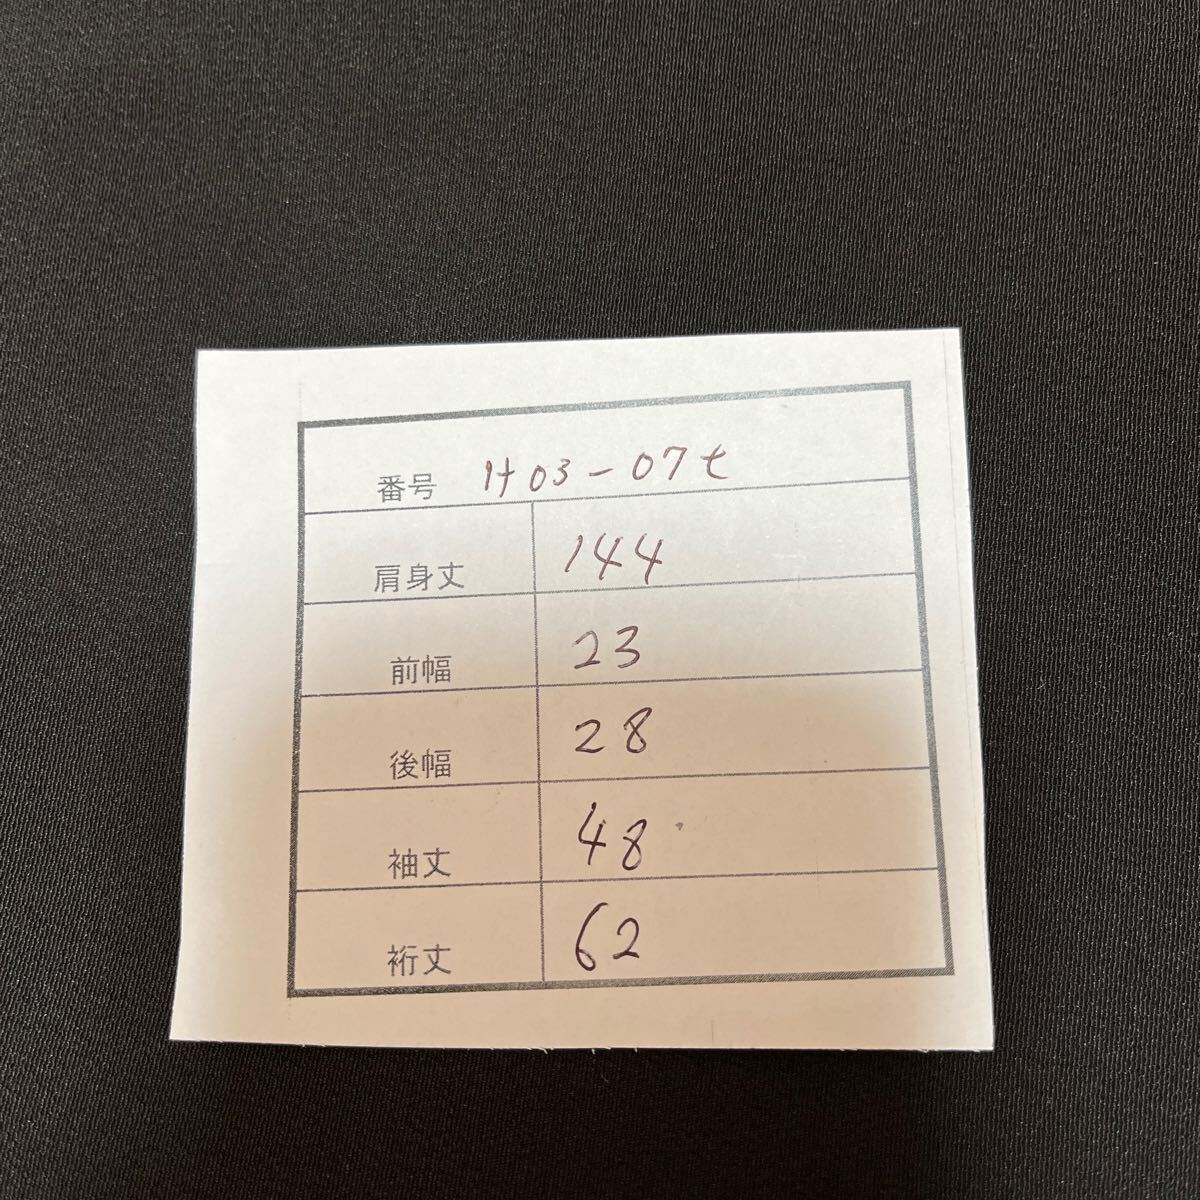 番号 H03-07t
肩身丈 144
前幅 23
後幅 28
袖丈 48
裄丈 62